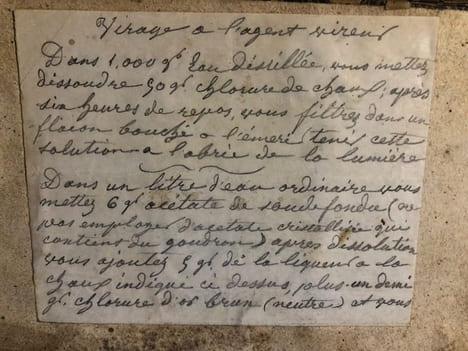 Virage a l'agent vireur
Dans 1,000 gr Eau distillée, vous mettez
dissoudre 50 gr chlorure de chaux; après
six heures de repos, vous filtrez dans un
flacon bouché a l'émeri tenir cette
solution a l'abrie de la lumière
Dans un litre d'eau ordinaire vous
mettez 6 gr acétate de soude fondu (ne
pas employer d'acétate cristallisé qui
contiens du goudron) apres dissolution
vous ajoutez 5 gr de la liqueur a la
chaux indique ci dessus, plus un demi
gr chlorure d'or brun (neutre) et vous